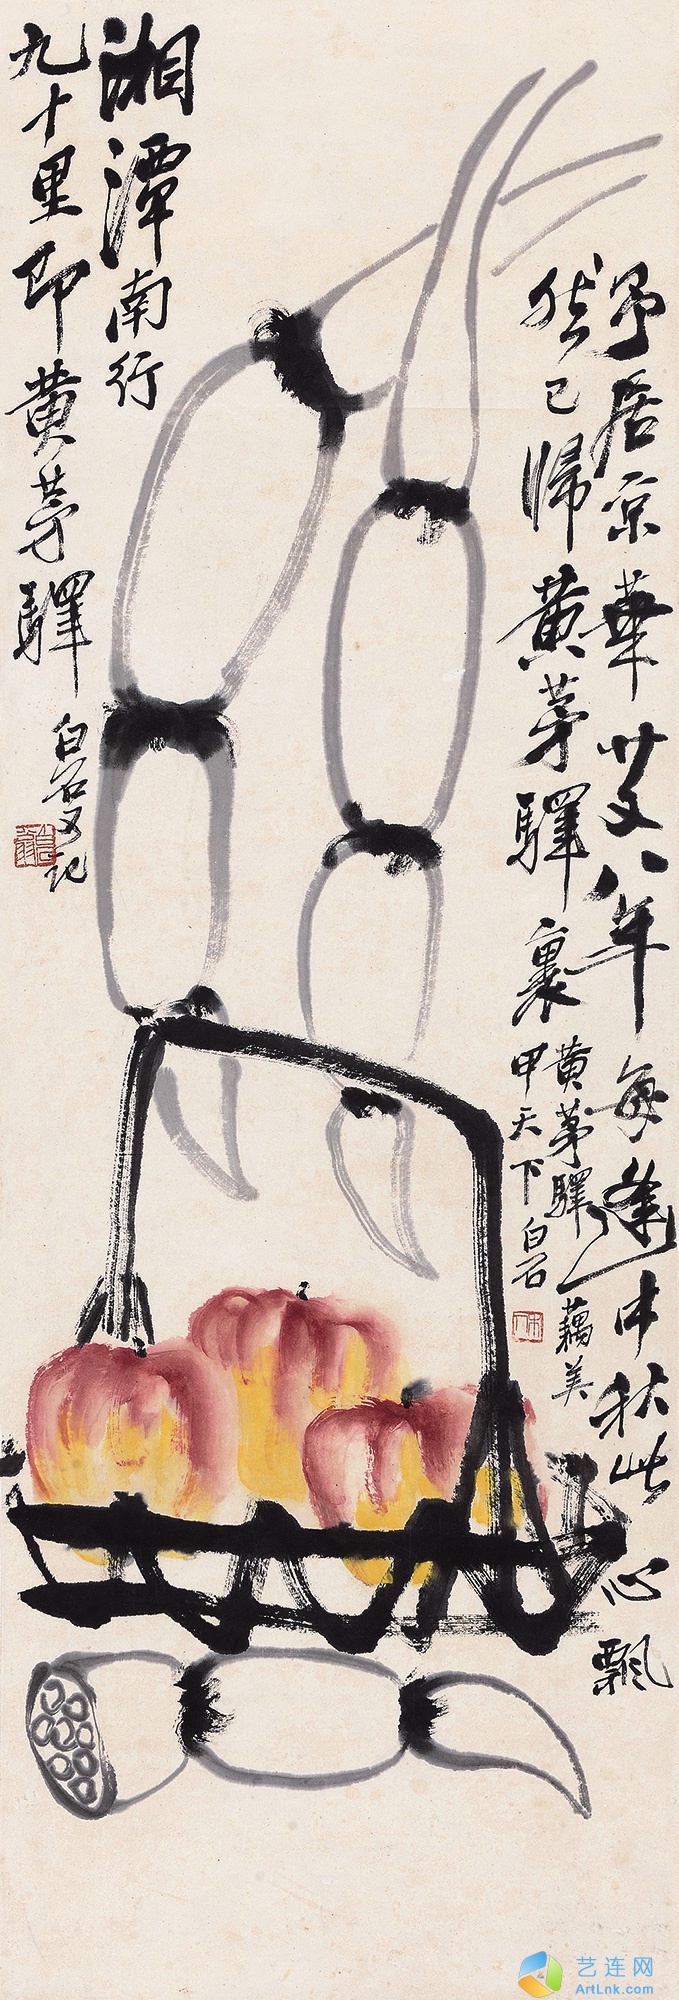 予居京華廿又八年每逢中秋此心飄
然已歸黃茅驛裏
黃茅驛藕美
甲天下白石
湘潭南行
九十里即黃茅驛
白石又記
艺连网
ArtLnk.com